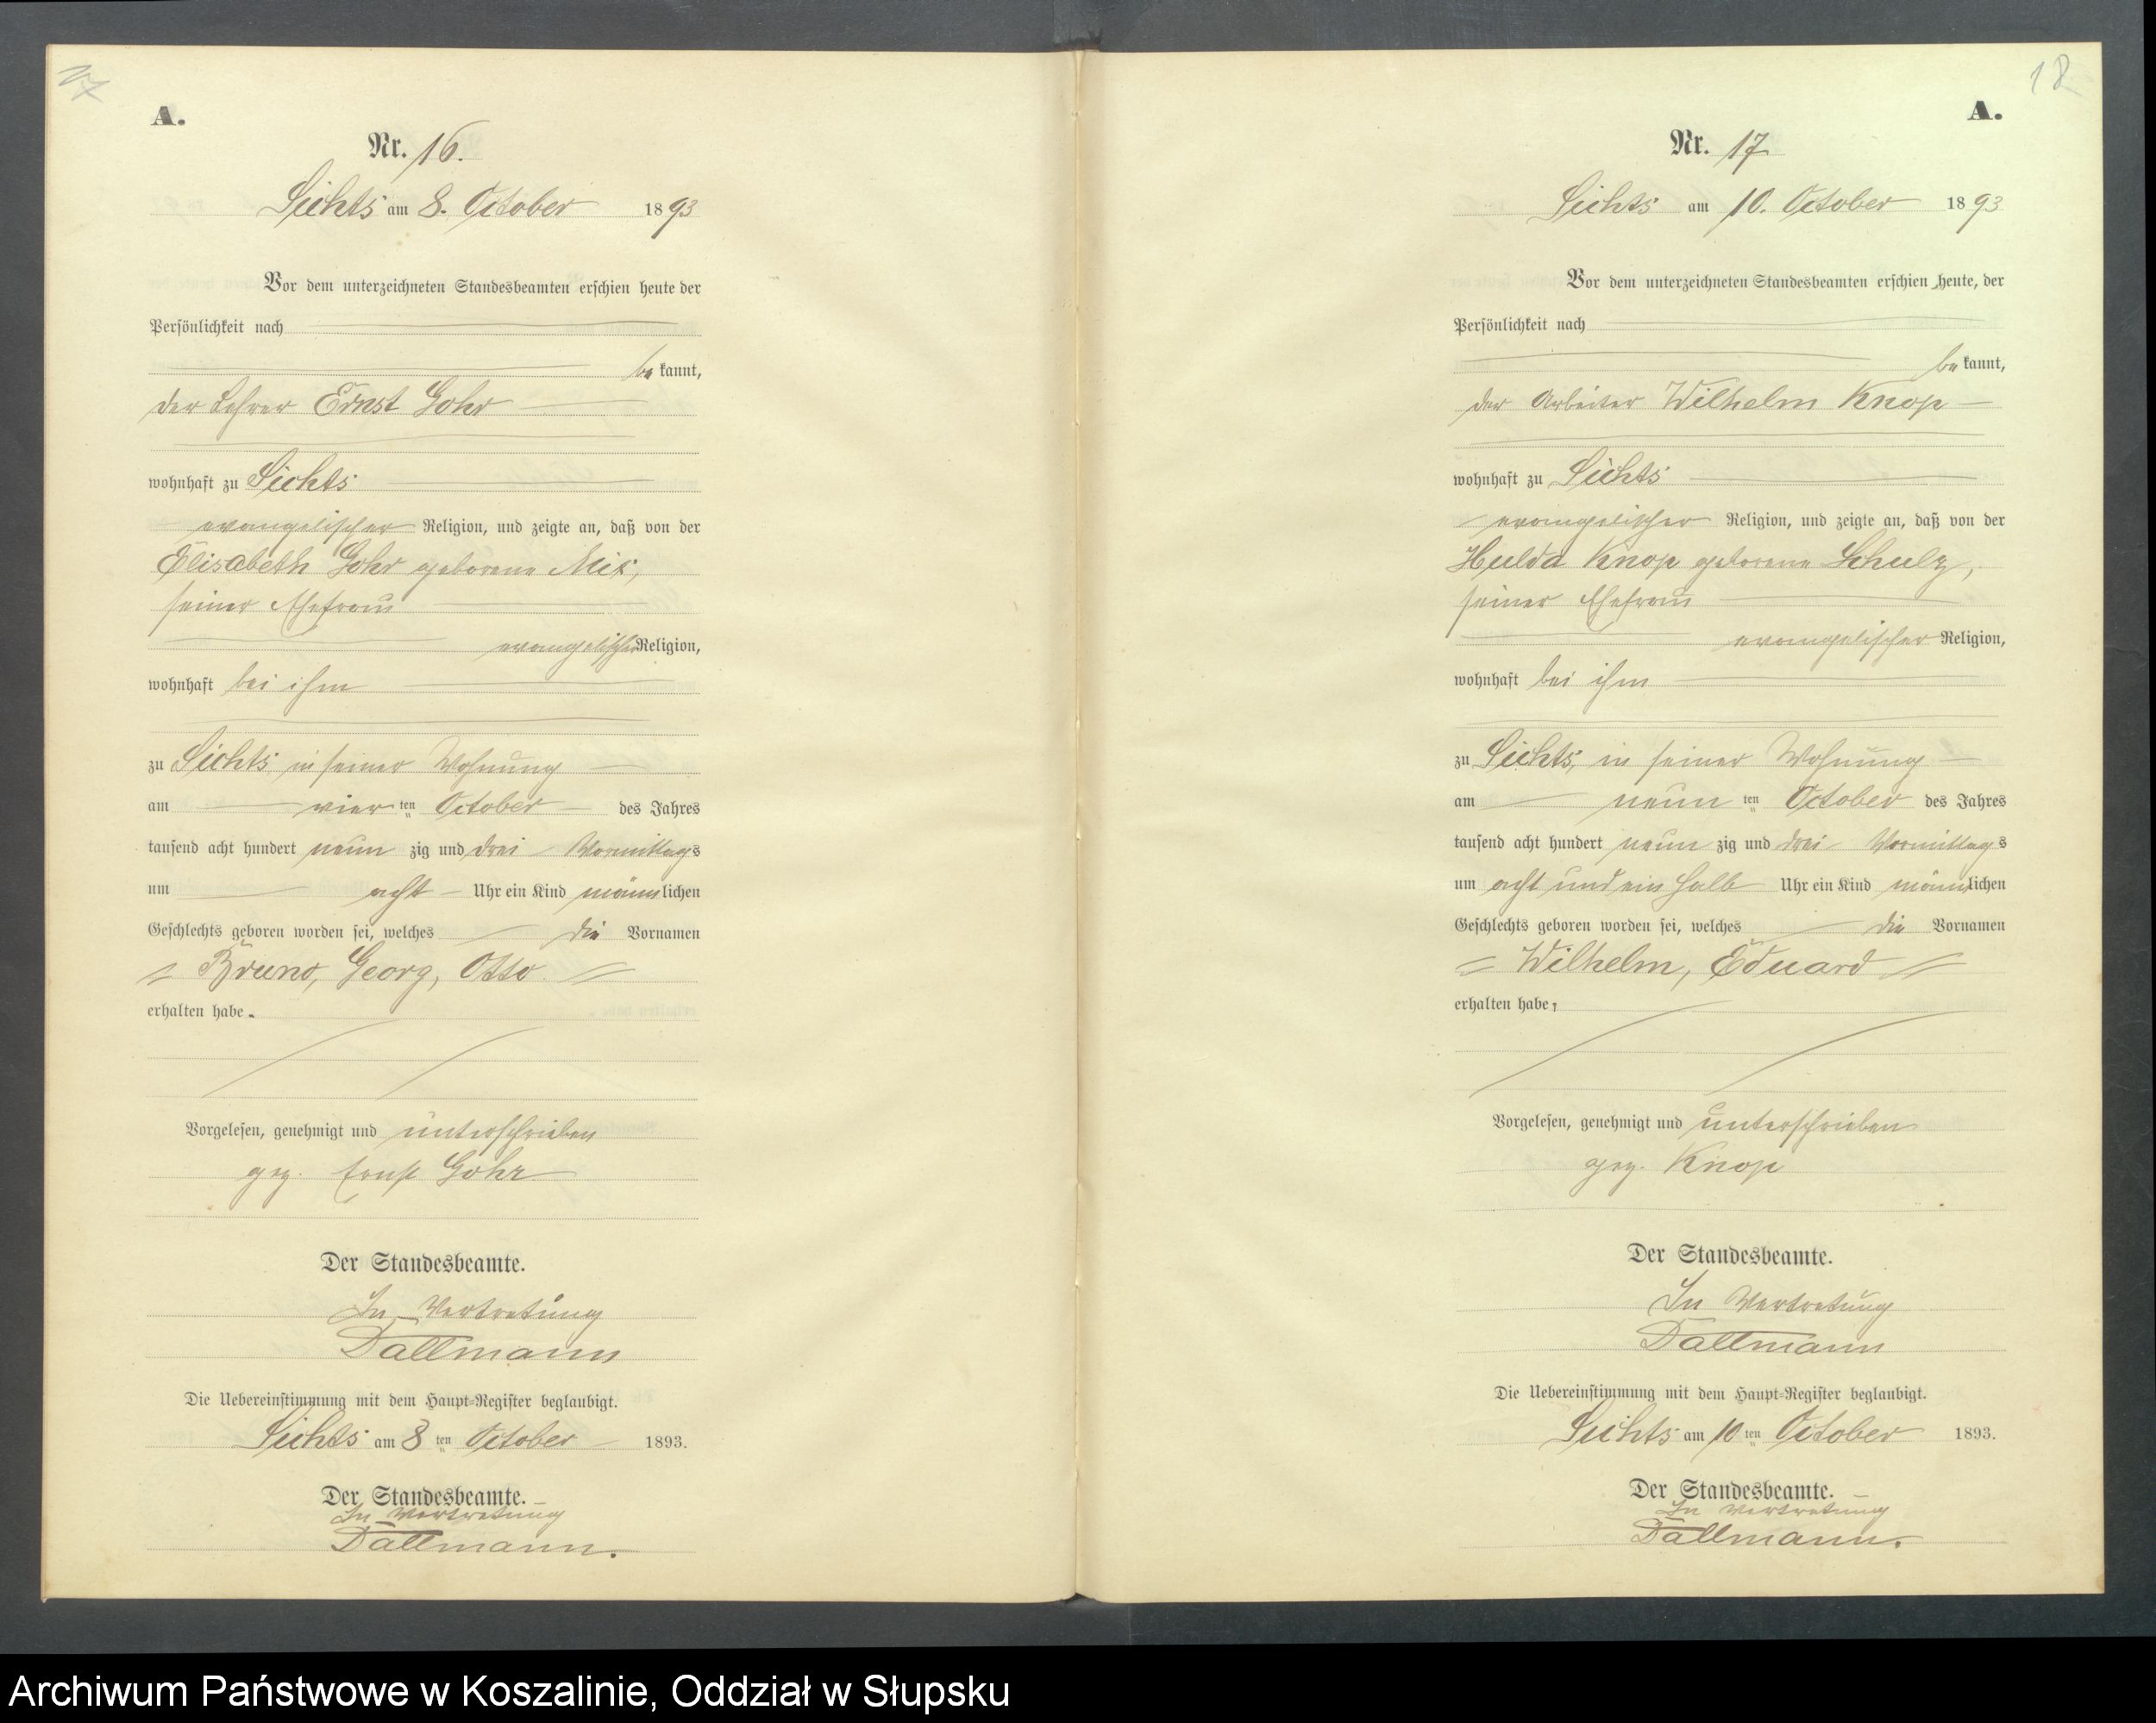 17
A.
Nr. 16.
Sichts am 8. October 1893
Vor dem unterzeichneten Standesbeamten erschien heute der
Persönlichkeit nach
be kannt,
der Lehrer Ernst Gohr
wohnhaft zu Sichts
evangelischer Religion, und zeigte an, daß von der
Elisabeth Gohr geborene Mix,
seiner Ehefrau
evangelischer Religion,
wohnhaft bei ihm
zu Sichts, in seiner Wohnung
am vier ten October des Jahres
tausend acht hundert neun zig und drei Vormittags
um acht Uhr ein Kind männlichen
Geschlechts geboren worden sei, welches die Vornamen
Bruno, Georg, Otto
erhalten habe.
Vorgelesen, genehmigt und unterschrieben
gez. Ernst Gohr
Der Standesbeamte.
In Vertretung
Dallmann
Die Uebereinstimmung mit dem Haupt-Register beglaubigt.
Sichts am 8 ten October 1893.
Der Standesbeamte.
In Vertretung
Dallmann.
18
A.
Nr. 17
Sichts am 10. October 1893
Vor dem unterzeichneten Standesbeamten erschien heute, der
Persönlichkeit nach
be kannt,
der Arbeiter Wilhelm Knop
wohnhaft zu Sichts
evangelischer Religion, und zeigte an, daß von der
Hulda Knop geborene Schulz,
seiner Ehefrau
evangelischer Religion,
wohnhaft bei ihm
zu Sichts, in seiner Wohnung
am neun ten October des Jahres
tausend acht hundert neun zig und drei Vormittags
um acht und ein halb Uhr ein Kind männlichen
Geschlechts geboren worden sei, welches die Vornamen
Wilhelm, Eduard
erhalten habe,
Vorgelesen, genehmigt und unterschrieben
gez. Knop
Der Standesbeamte.
In Vertretung
Dallmann
Die Uebereinstimmung mit dem Haupt-Register beglaubigt.
Sichts am 10 ten October 1893.
Der Standesbeamte.
In Vertretung
Dallmann.
Archiwum Państwowe w Koszalinie, Oddział w Słupsku